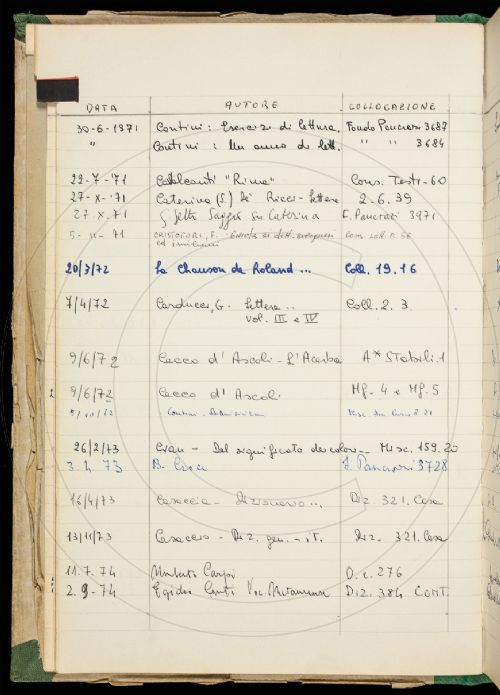 DATA AUTORE COLLOCAZIONE
30-6-1971 Contini: Esercizi di lettura. Fondo Pancrazi 3687
" Contini: Un anno di lett. " " 3684
22-7-'71 Cavalcanti "Rime" Cons. Testi-60
27-X-'71 Caterina (S.) de' Ricci - Lettere 2-6.39
27.X.71 Getto Saggio su Caterina F. Pancrazi 3971
5-11-71 CRISTOFORI, F.
ed
20/3/72 La Chanson de Roland... Coll. 19.16
7/4/72 Carducci, G. Lettere..
vol. III e IV Coll. 2. 3.
9/6/72 Cecco d'Ascoli - L'Acerba A* Stabili.1
9/6/72 Cecco d'Ascoli Mf. 4 e Mf. 5
Contini
26/2/73 Evan - Del significato dei colori -- Misc. 159.20
3.4.73 B. Croce F. Pancrazi 3728
16/4/73 Casaccia - Dizionario... Diz. 321. Casa
13/11/73 Casaccia - Diz. gen. - it. Diz. 321. Casa
11.7.74 Umberto Carpi O.c. 276
2.9-74 Egidio Conti Voc. Metaurense Diz. 384 CONT.